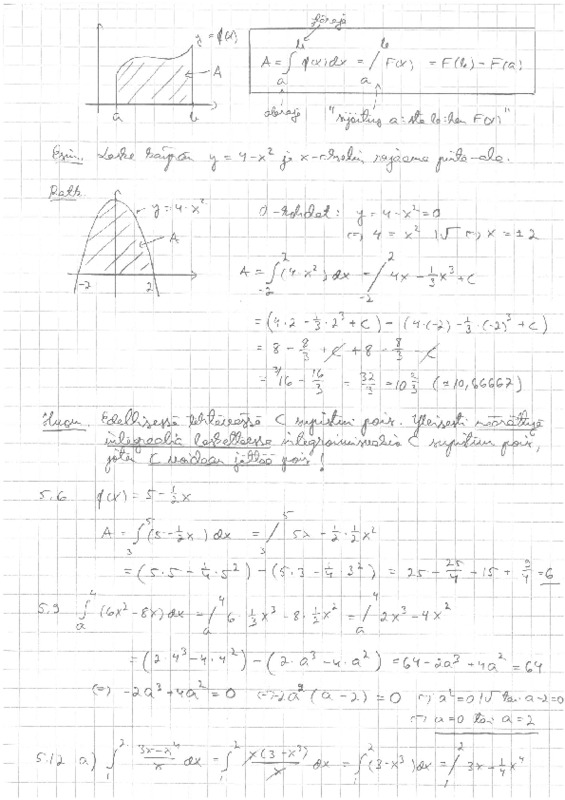 yläraja
y = f(x)
A
a b
A = ∫_a^b f(x) dx = /_a^b F(x) = F(b) - F(a)
alaraja "sijoitus a:sta b:hen F(x)"
Esim. Laske käyrän y = 4 - x² ja x-akselin rajaama pinta-ala.
Ratk.
y = 4 - x²
A
-2 2
0-kohdat: y = 4 - x² = 0
⇔ 4 = x² |√ ⇔ x = ±2
A = ∫_{-2}^{2} (4 - x²) dx = /_{-2}^{2} 4x - 1/3 x³ + C
= (4·2 - 1/3·2³ + C) - (4·(-2) - 1/3·(-2)³ + C)
= 8 - 8/3 + C + 8 - 8/3 - C
= ³⁾16 - 16/3 = 32/3 = 10 2/3 (≈ 10,66667)
Huom. Edellisessä tehtävässä C supistui pois. Yleisesti määrättyä
integraalia laskettaessa integroimisvakio C supistuu pois,
joten C voidaan jättää pois!
5.6 f(x) = 5 - 1/2 x
A = ∫_3^5 (5 - 1/2 x) dx = /_3^5 5x - 1/2 · 1/2 x²
= (5·5 - 1/4·5²) - (5·3 - 1/4·3²) = 25 - 25/4 - 15 + 9/4 = 6
5.9 ∫_a^4 (6x² - 8x) dx = /_a^4 6 · 1/3 x³ - 8 · 1/2 x² = /_a^4 2x³ - 4x²
= (2·4³ - 4·4²) - (2·a³ - 4·a²) = 64 - 2a³ + 4a² = 64
⇔ -2a³ + 4a² = 0 ⇔ -2a² (a - 2) = 0 ⇔ a² = 0 |√ tai a - 2 = 0
⇔ a = 0 tai a = 2
5.12 a) ∫_1^2 (3x - x⁴)/x dx = ∫_1^2 x(3 - x³)/x dx = ∫_1^2 (3 - x³) dx = /_1^2 3x - 1/4 x⁴